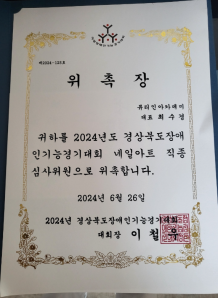 제2024-123호
위촉장
유리인아카데미
대표 최수정
귀하를 2024년도 경상북도장애
인기능경기대회 네일아트 직종
심사위원으로 위촉합니다.
2024년 6월 26일
2024년 경상북도장애인기능경기대회
대회장 이철우